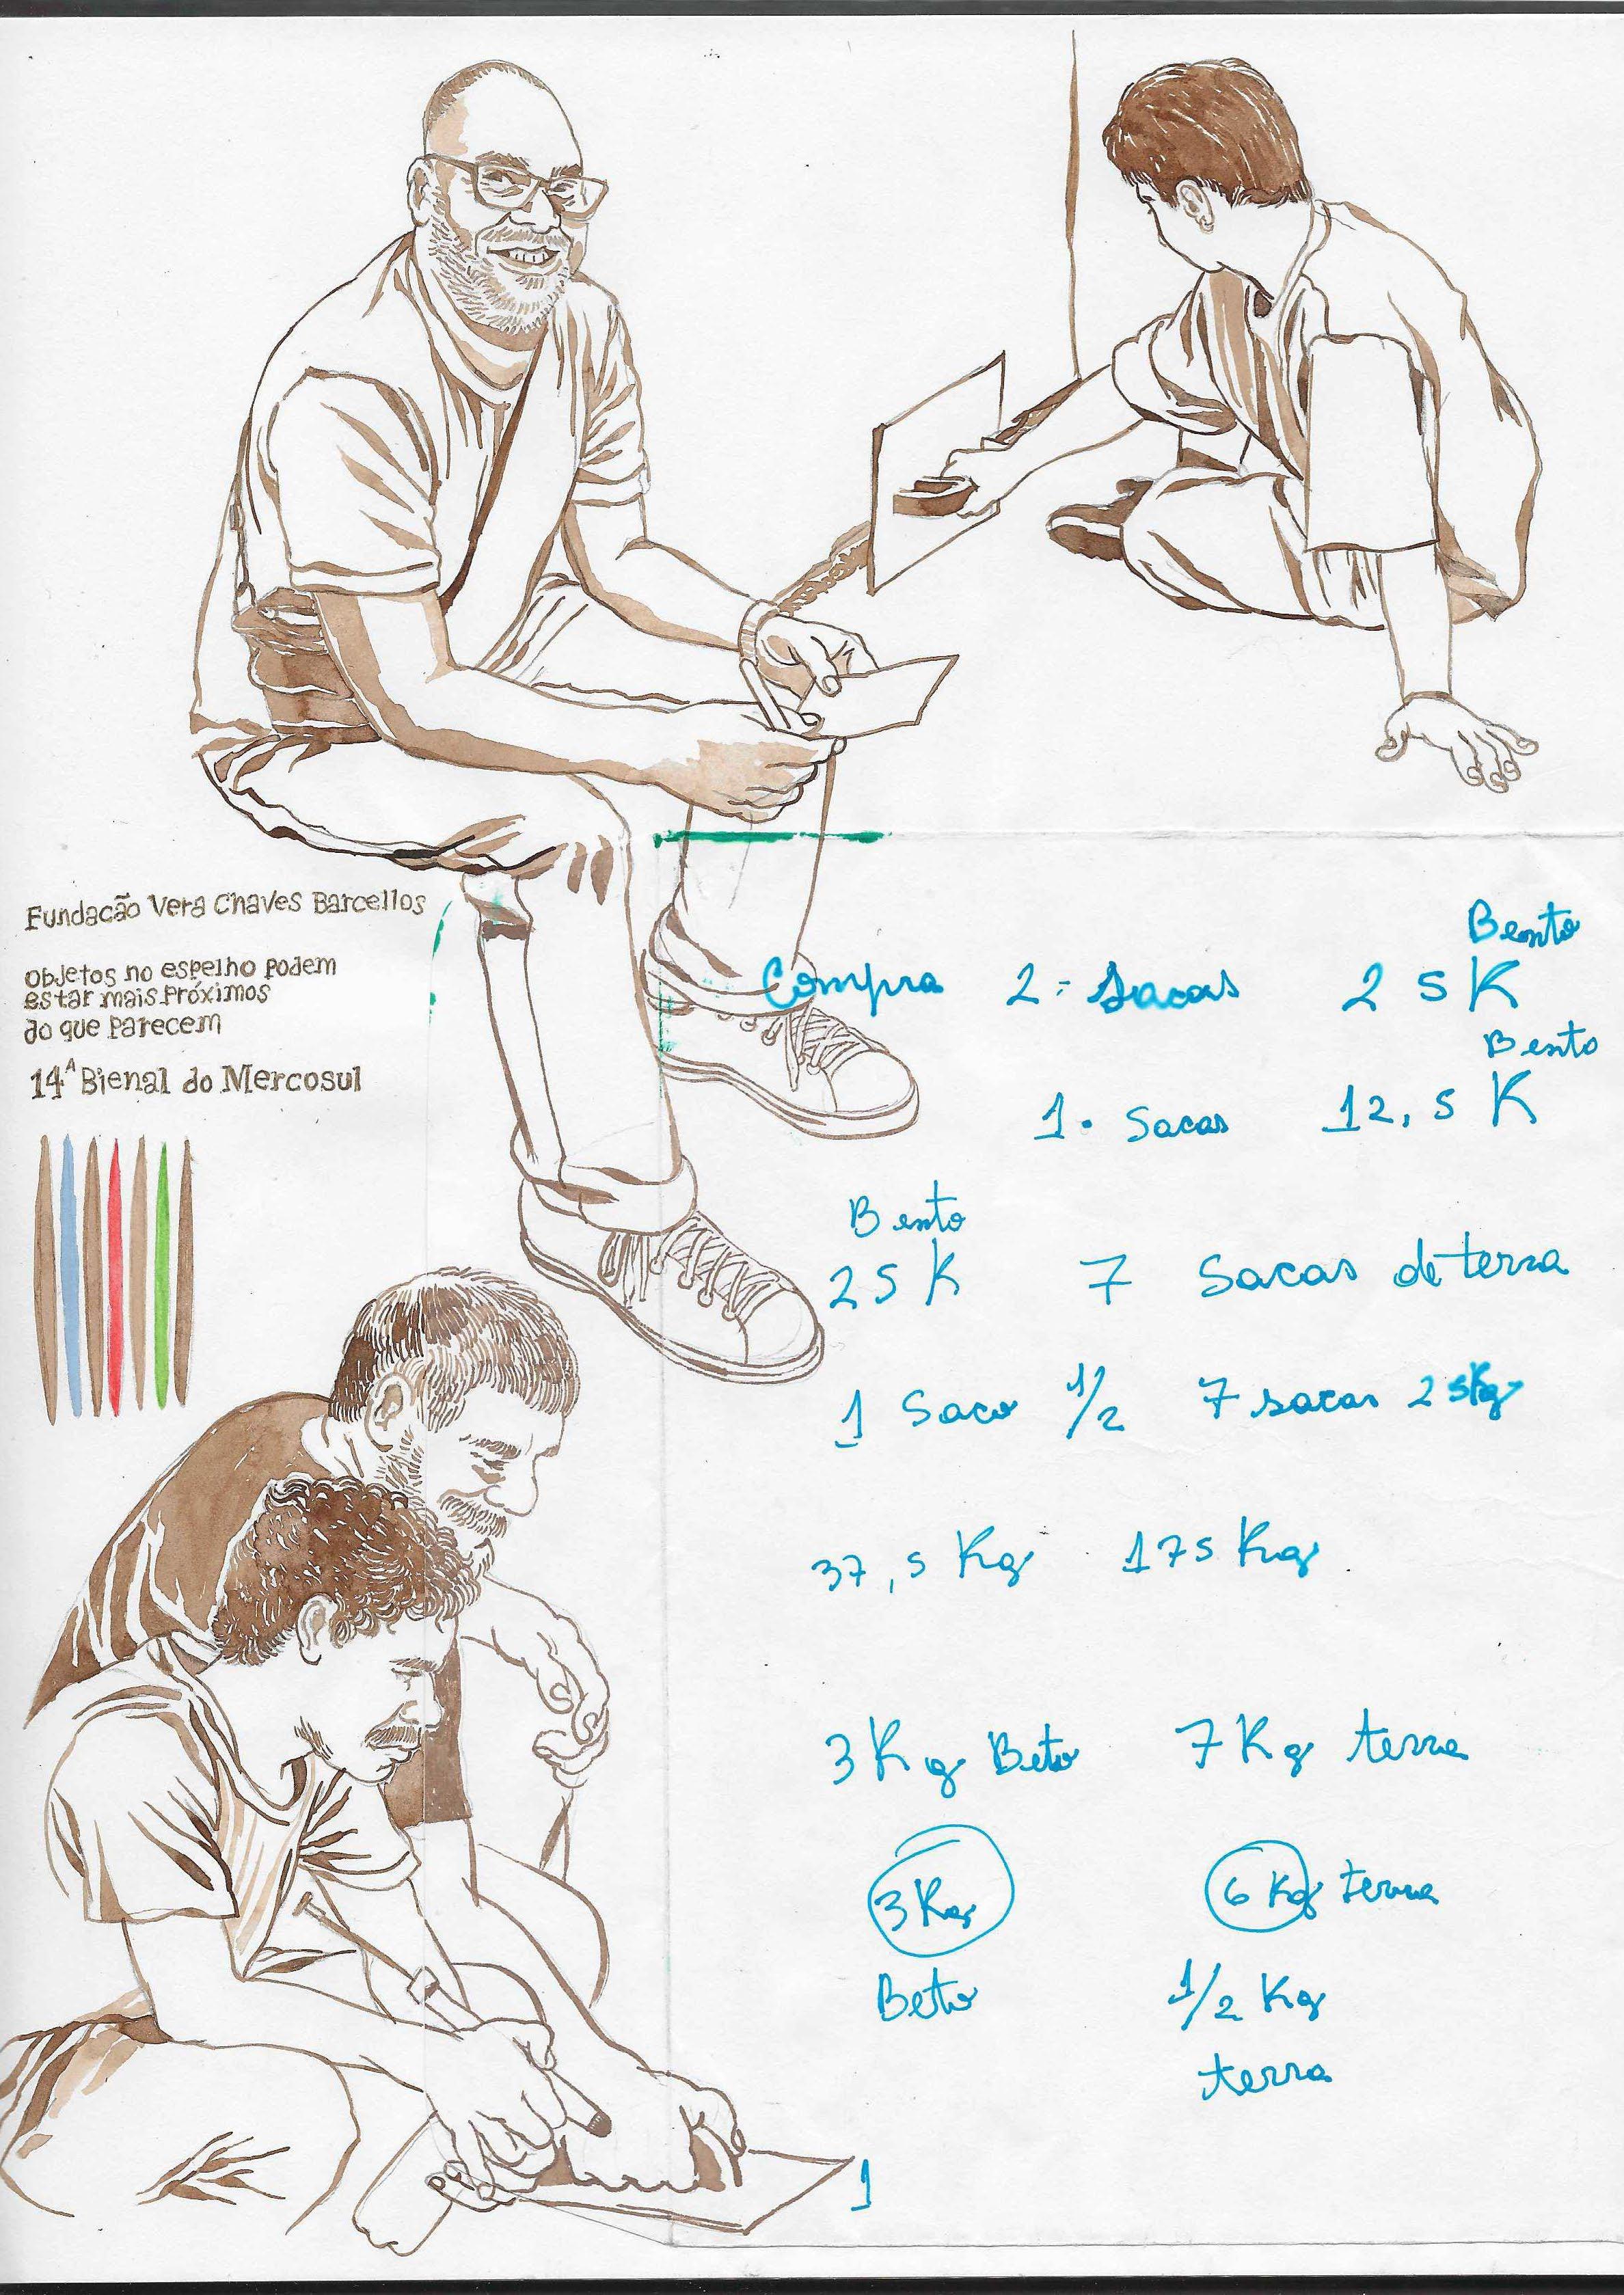 Fundação Vera Chaves Barcellos
Objetos no espelho podem
estar mais próximos
do que parecem
14ª Bienal do Mercosul
Bento
Compra 2 - Sacas 25K
Bento
1. Sacas 12,5 K
Bento
25 K 7 Sacas de terra
1 Saco 1/2 7 sacas 25Kg
37,5 Kg 175 Kg
3 Kg Beto 7 Kg terra
3 Kg 6 Kg terra
Beto 1/2 Kg
terra
1